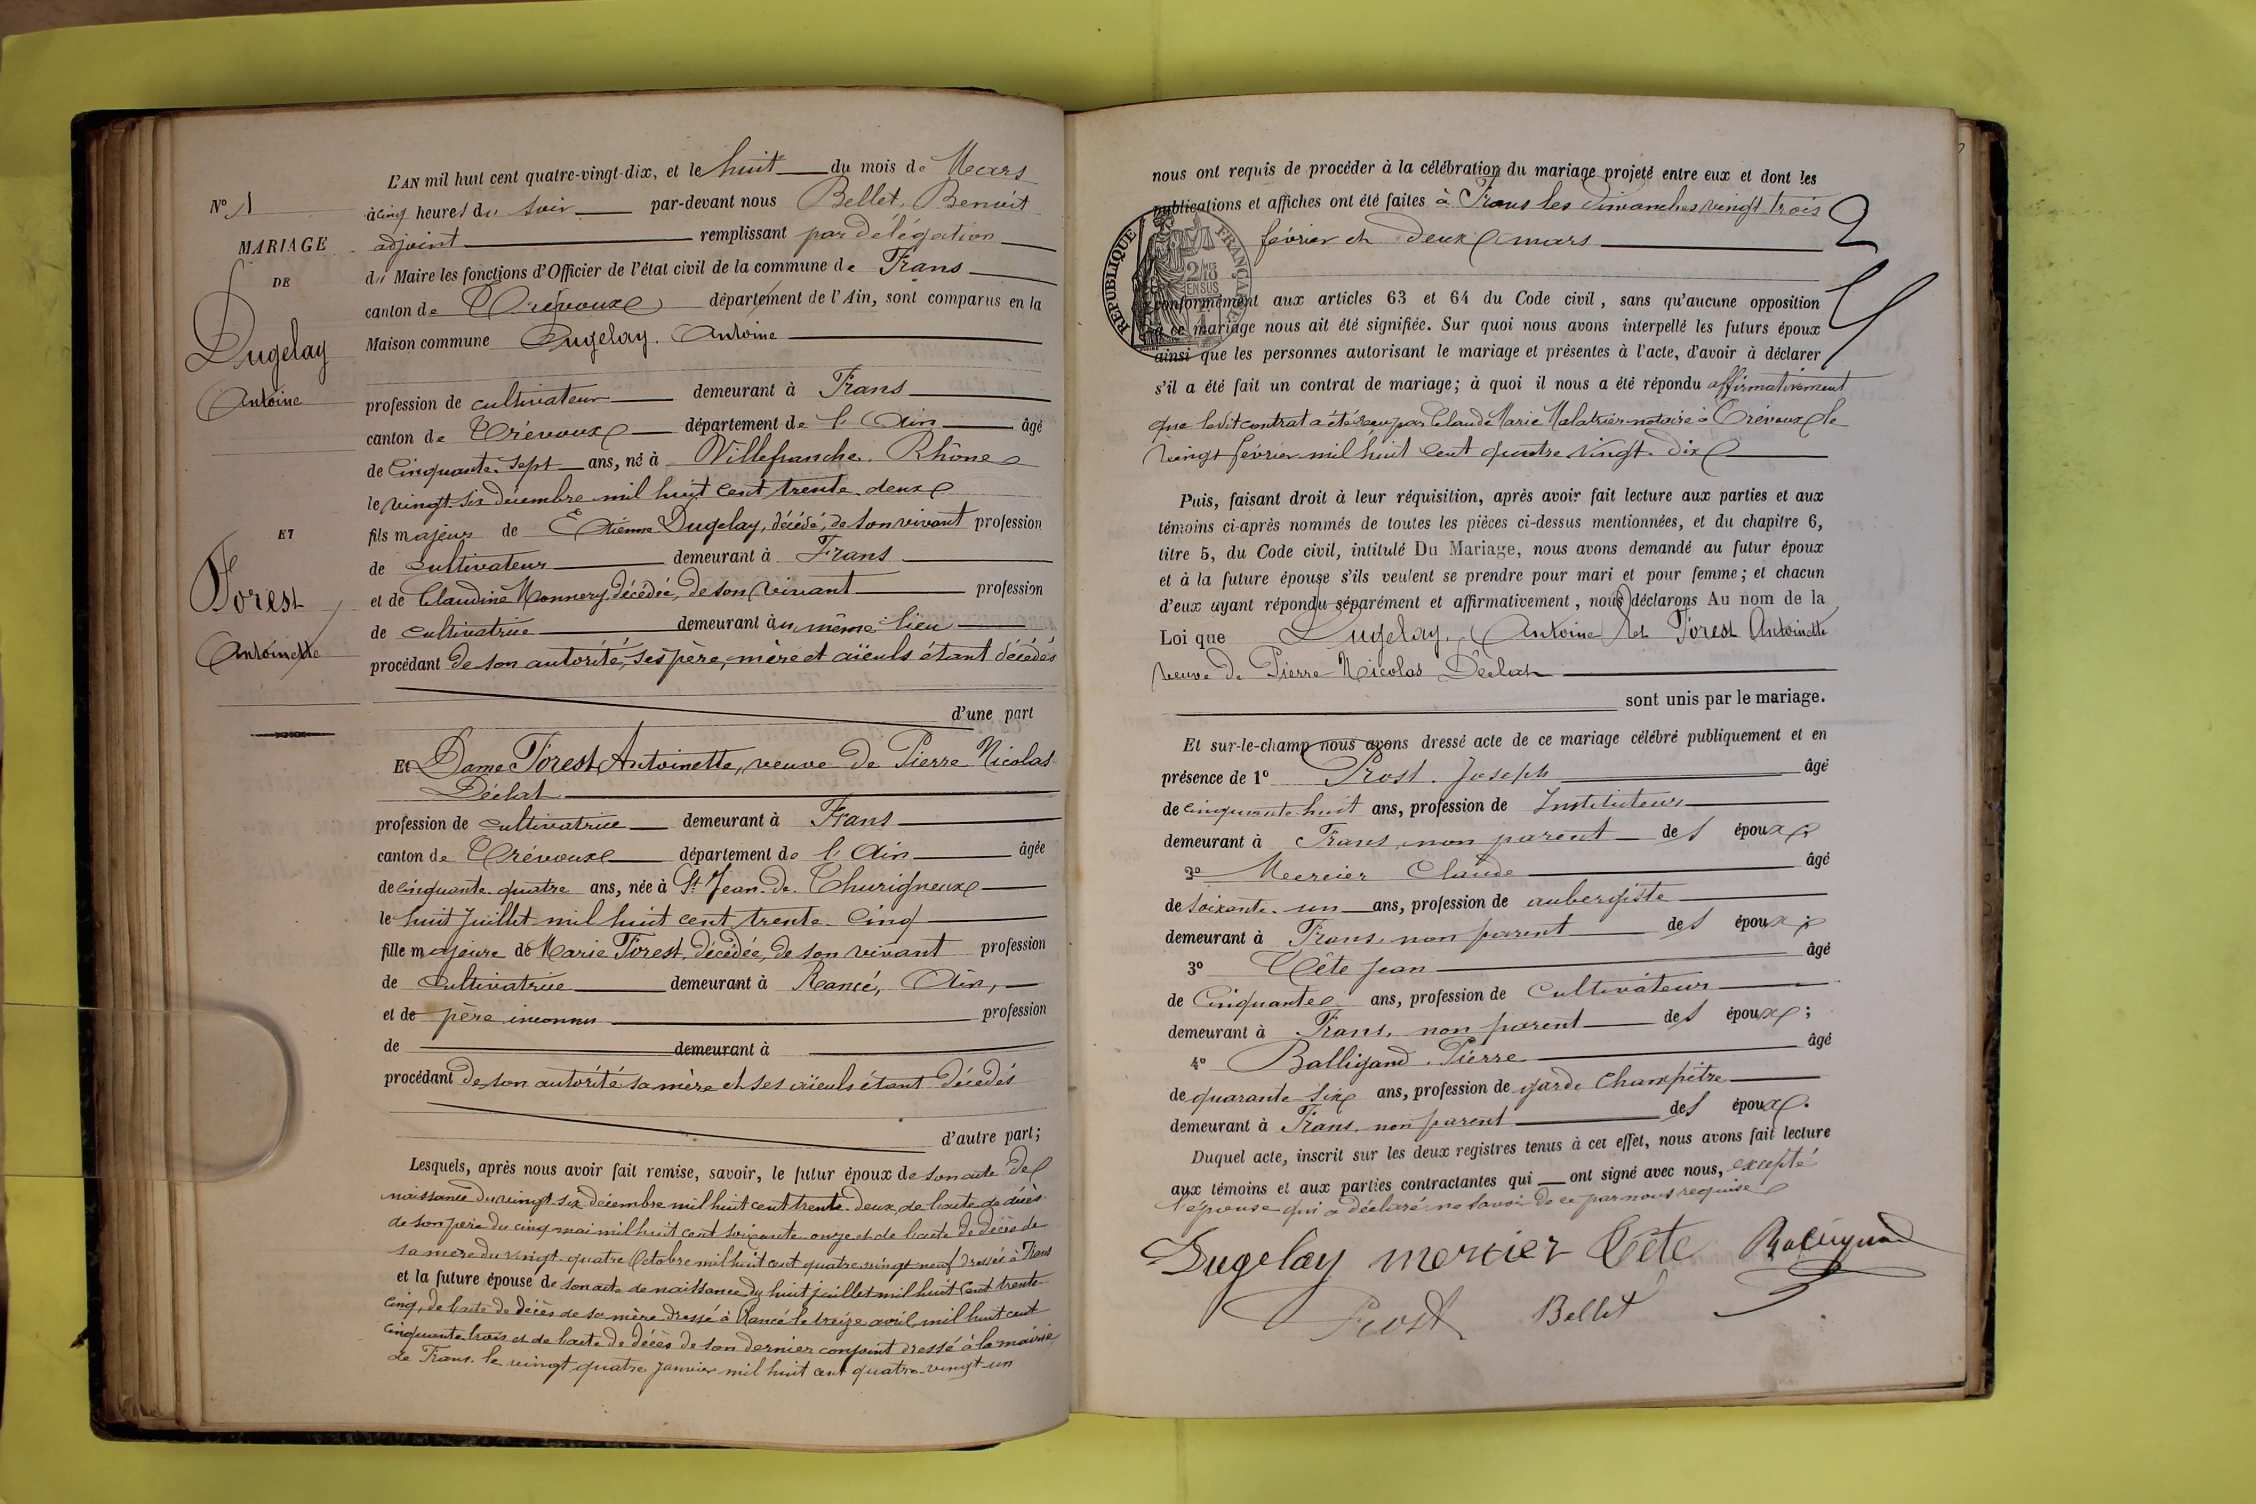 L'AN mil huit cent quatre-vingt-dix, et le huit du mois de Mars
N° 1
à cinq heures du soir par-devant nous Bellet, Benoît
MARIAGE
adjoint remplissant par délégation
DE
du Maire les fonctions d'Officier de l'état civil de la commune de Frans
canton de Trévoux département de l'Ain, sont comparus en la
Dugelay
Maison commune Dugelay. Antoine
Antoine
profession de cultivateur demeurant à Frans
canton de Trévoux département de l'Ain âgé
de Cinquante-sept ans, né à Villefranche. Rhône
le vingt-six décembre mil huit cent trente-deux
ET
fils majeur de Etienne Dugelay, décédé, de son vivant profession
de cultivateur demeurant à Frans
Forest
et de Claudine Monnery décédée, de son vivant profession
de cultivatrice demeurant au même lieu
Antoinette
procédant de son autorité, ses père, mère et aïeuls étant décédés
d'une part
Et Dame Forest Antoinette, veuve de Pierre Nicolas
Déclat
profession de cultivatrice demeurant à Frans
canton de Trévoux département de l'Ain âgée
de cinquante-quatre ans, née à St Jean-de-Thurigneux
le huit Juillet mil huit cent trente-cinq
fille majeure de Marie Forest, décédée, de son vivant profession
de cultivatrice demeurant à Rancé, Ain,
et de père inconnu profession
de demeurant à
procédant de son autorité sa mère et ses aïeuls étant décédés
d'autre part;
Lesquels, après nous avoir fait remise, savoir, le futur époux de son acte de
naissance du vingt-six décembre mil huit cent trente-deux, de l'acte de décès
de son père du cinq mai mil huit cent soixante onze et de l'acte de décès de
sa mère du vingt-quatre Octobre mil huit cent quatre-vingt neuf dressés à Frans
et la future épouse de son acte de naissance du huit juillet mil huit cent trente-
cinq, de l'acte de décès de sa mère dressé à Rancé le treize avril mil huit cent
cinquante-trois et de l'acte de décès de son dernier conjoint dressé à la mairie
de Frans le vingt-quatre janvier mil huit cent quatre-vingt-un
nous ont requis de procéder à la célébration du mariage projeté entre eux et dont les
publications et affiches ont été faites à Frans les dimanches vingt trois
février et deux mars
RÉPUBLIQUE FRANÇAISE
conformément aux articles 63 et 64 du Code civil, sans qu'aucune opposition
à ce mariage nous ait été signifiée. Sur quoi nous avons interpellé les futurs époux
ainsi que les personnes autorisant le mariage et présentes à l'acte, d'avoir à déclarer
s'il a été fait un contrat de mariage; à quoi il nous a été répondu affirmativement
que ledit contrat a été reçu par Claude Marie Malatrier notaire à Trévoux le
vingt février mil huit cent quatre vingt-dix
Puis, faisant droit à leur réquisition, après avoir fait lecture aux parties et aux
témoins ci-après nommés de toutes les pièces ci-dessus mentionnées, et du chapitre 6,
titre 5, du Code civil, intitulé Du Mariage, nous avons demandé au futur époux
et à la future épouse s'ils veulent se prendre pour mari et pour femme; et chacun
d'eux ayant répondu séparément et affirmativement, nous déclarons Au nom de la
Loi que Dugelay, Antoine et Forest Antoinette
veuve de Pierre Nicolas Déclat
sont unis par le mariage.
Et sur-le-champ nous avons dressé acte de ce mariage célébré publiquement et en
présence de 1° Prost. Joseph âgé
de cinquante-huit ans, profession de Instituteur
demeurant à Frans, non parent des époux;
2° Mercier Claude âgé
de soixante-un ans, profession de aubergiste
demeurant à Frans, non parent des époux;
3° Tête Jean âgé
de Cinquante ans, profession de Cultivateur
demeurant à Frans, non parent des époux;
4° Balligand. Pierre âgé
de quarante-six ans, profession de garde Champêtre
demeurant à Frans, non parent des époux.
Duquel acte, inscrit sur les deux registres tenus à cet effet, nous avons fait lecture
aux témoins et aux parties contractantes qui ont signé avec nous, excepté
l'épouse qui a déclaré ne savoir de ce par nous requise
Dugelay mercier Tête Balligand
Prost Bellet